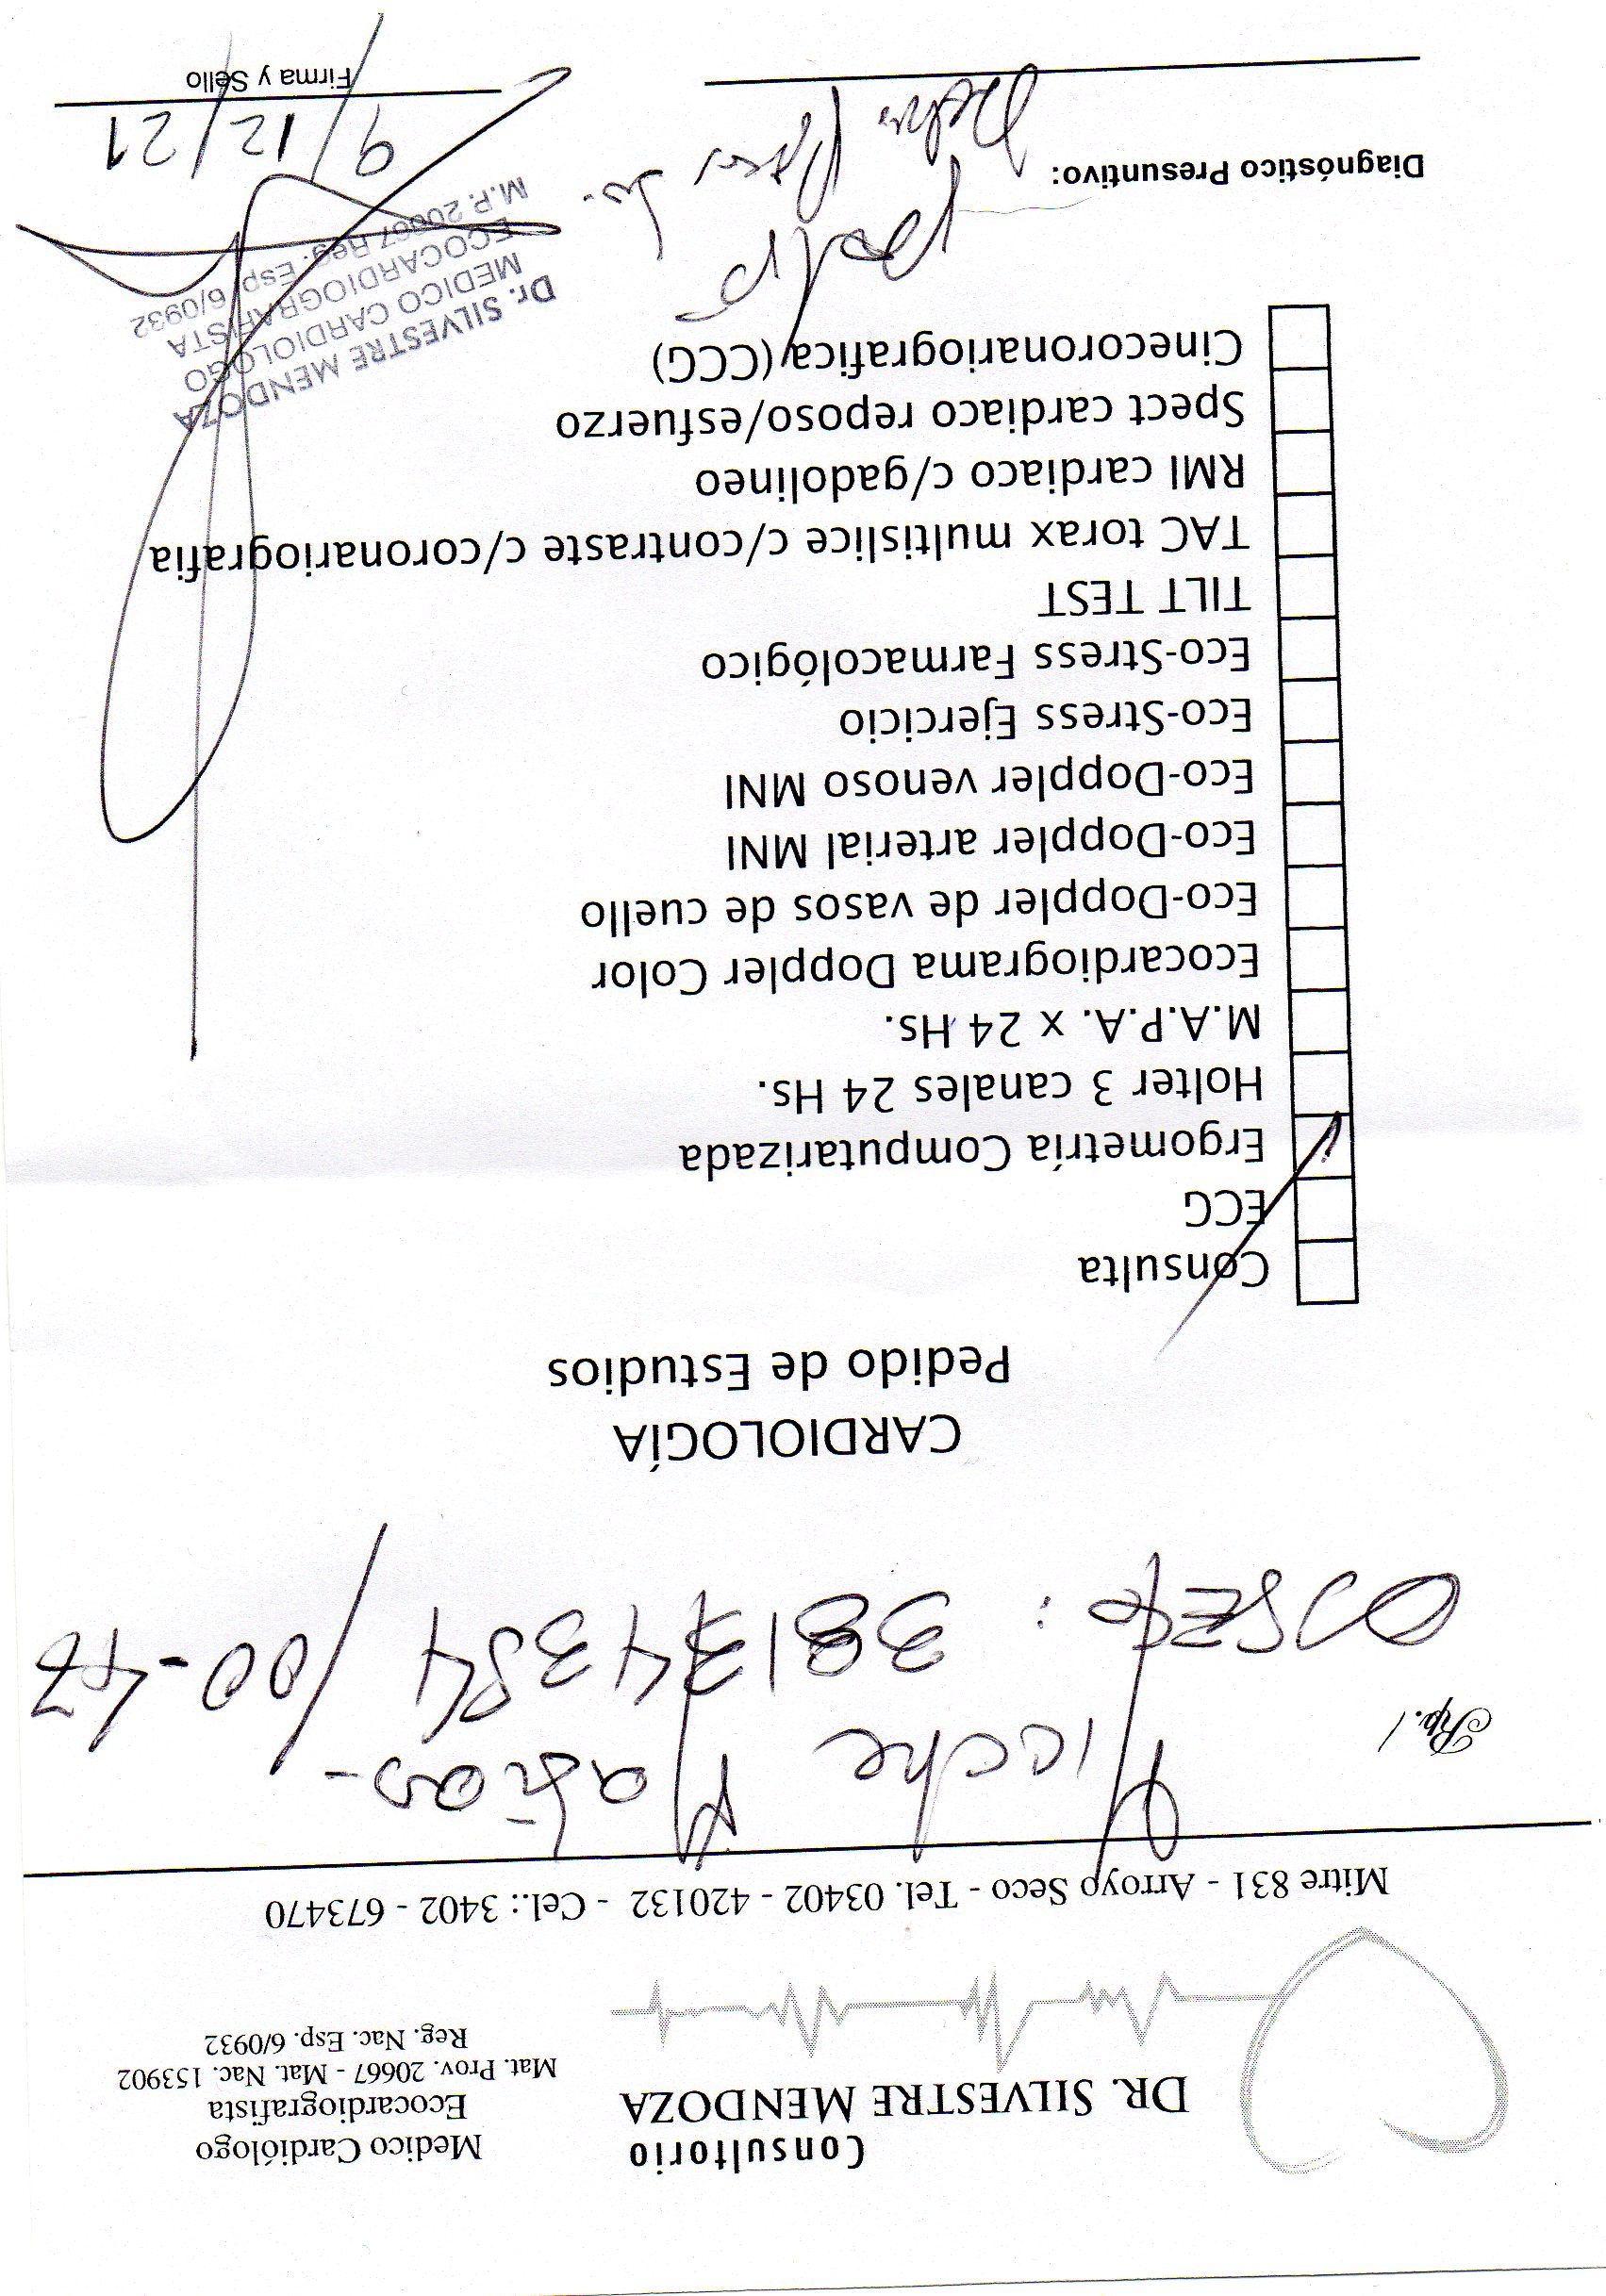 Consultorio
DR. SILVESTRE MENDOZA
Medico Cardiólogo
Ecocardiografista
Mat. Prov. 20667 - Mat. Nac. 153902
Reg. Nac. Esp. 6/0932
Mitre 831 - Arroyo Seco - Tel. 03402 - 420132 - Cel.: 3402 - 673470
Micche Matias-
Rp./
/00-47
CARDIOLOGÍA
Pedido de Estudios
Consulta
ECG
Ergometría Computarizada
Holter 3 canales 24 Hs.
M.A.P.A. x 24 Hs.
Ecocardiograma Doppler Color
Eco-Doppler de vasos de cuello
Eco-Doppler arterial MNI
Eco-Doppler venoso MNI
Eco-Stress Ejercicio
Eco-Stress Farmacológico
TILT TEST
TAC torax multislice c/contraste c/coronariografia
RMI cardiaco c/gadolineo
Spect cardiaco reposo/esfuerzo
Cinecoronariografica (CCG)
Dr. SILVESTRE MENDOZA
MEDICO CARDIOLOGO
ECOCARDIOGRAFISTA
M.P. 20667 Reg. Esp. 6/0932
Diagnóstico Presuntivo:
9/12/21
Firma y Sello